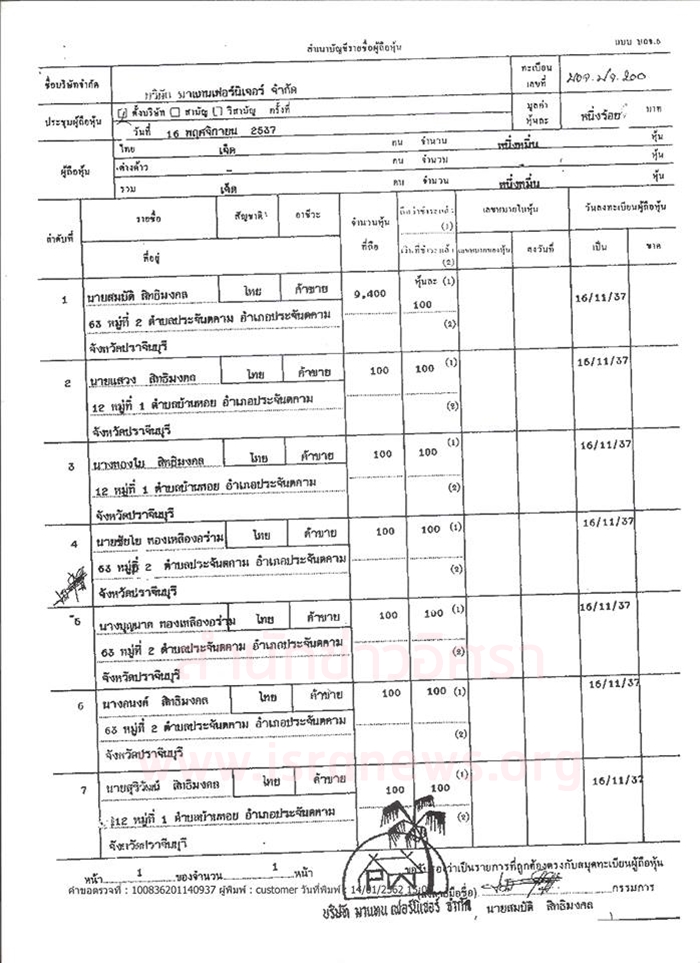 สำเนาบัญชีรายชื่อผู้ถือหุ้น
แบบ บอจ.5
ชื่อบริษัทจำกัด บริษัท มาเทนเฟอร์นิเจอร์ จำกัด ทะเบียนเลขที่ บอจ.ปจ.200
ประชุมผู้ถือหุ้น ตั้งบริษัท สามัญ วิสามัญ ครั้งที่ มูลค่าหุ้นละ หนึ่งร้อย บาท
วันที่ 16 พฤศจิกายน 2537
ผู้ถือหุ้น
ไทย เจ็ด คน จำนวน หนึ่งหมื่น หุ้น
ต่างด้าว - คน จำนวน - หุ้น
รวม เจ็ด คน จำนวน หนึ่งหมื่น หุ้น
ลำดับที่ รายชื่อ สัญชาติ อาชีวะ จำนวนหุ้นที่ถือ ถือว่าชำระแล้ว (1) เลขหมายใบหุ้น วันลงทะเบียนผู้ถือหุ้น
ที่อยู่ เงินที่ชำระแล้ว (2) เลขหมายของหุ้น ลงวันที่ เป็น ขาด
1 นายสมบัติ สิทธิมงคล ไทย ค้าขาย 9,400 หุ้นละ (1) 100 (2) 16/11/37
63 หมู่ที่ 2 ตำบลประจันตคาม อำเภอประจันตคาม
จังหวัดปราจีนบุรี
2 นายแสวง สิทธิมงคล ไทย ค้าขาย 100 100 (1) (2) 16/11/37
12 หมู่ที่ 1 ตำบลบ้านหอย อำเภอประจันตคาม
จังหวัดปราจีนบุรี
3 นางทองใบ สิทธิมงคล ไทย ค้าขาย 100 100 (1) (2) 16/11/37
12 หมู่ที่ 1 ตำบลบ้านหอย อำเภอประจันตคาม
จังหวัดปราจีนบุรี
4 นายชัยโย ทองเหลืองอร่าม ไทย ค้าขาย 100 100 (1) (2) 16/11/37
63 หมู่ที่ 2 ตำบลประจันตคาม อำเภอประจันตคาม
จังหวัดปราจีนบุรี
5 นางบุญนาค ทองเหลืองอร่าม ไทย ค้าขาย 100 100 (1) (2) 16/11/37
63 หมู่ที่ 2 ตำบลประจันตคาม อำเภอประจันตคาม
จังหวัดปราจีนบุรี
สำนักข่าวอิศรา
6 นางอนงค์ สิทธิมงคล ไทย ค้าขาย 100 100 (1) (2) 16/11/37
63 หมู่ที่ 2 ตำบลประจันตคาม อำเภอประจันตคาม
จังหวัดปราจีนบุรี
www.isranews.org
7 นายสุริวัฒน์ สิทธิมงคล ไทย ค้าขาย 100 100 (1) (2) 16/11/37
12 หมู่ที่ 1 ตำบลบ้านหอย อำเภอประจันตคาม
จังหวัดปราจีนบุรี
หน้า 1 ของจำนวน 1 หน้า ขอรับรองว่าเป็นรายการที่ถูกต้องตรงกับสมุดทะเบียนผู้ถือหุ้น
คำขอตรวจที่ : 100836201140937 ผู้พิมพ์ : customer วันที่พิมพ์ : 14/01/2562
(ลงลายมือชื่อ) กรรมการ
บริษัท มาเทน เฟอร์นิเจอร์ จำกัด นายสมบัติ สิทธิมงคล